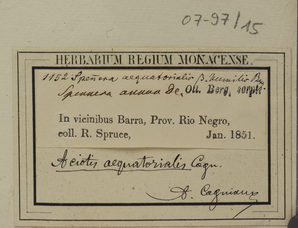 07-97/15
HERBARIUM REGIUM MONACENSE.
1152 Spennera aequatorialis β. humilis
Spennera annua DC. Ott. Berg, scripsit
In vicinibus Barra, Prov. Rio Negro,
coll. R. Spruce, Jan. 1851.
Aciotis aequatorialis Cogn.
A. Cogniaux